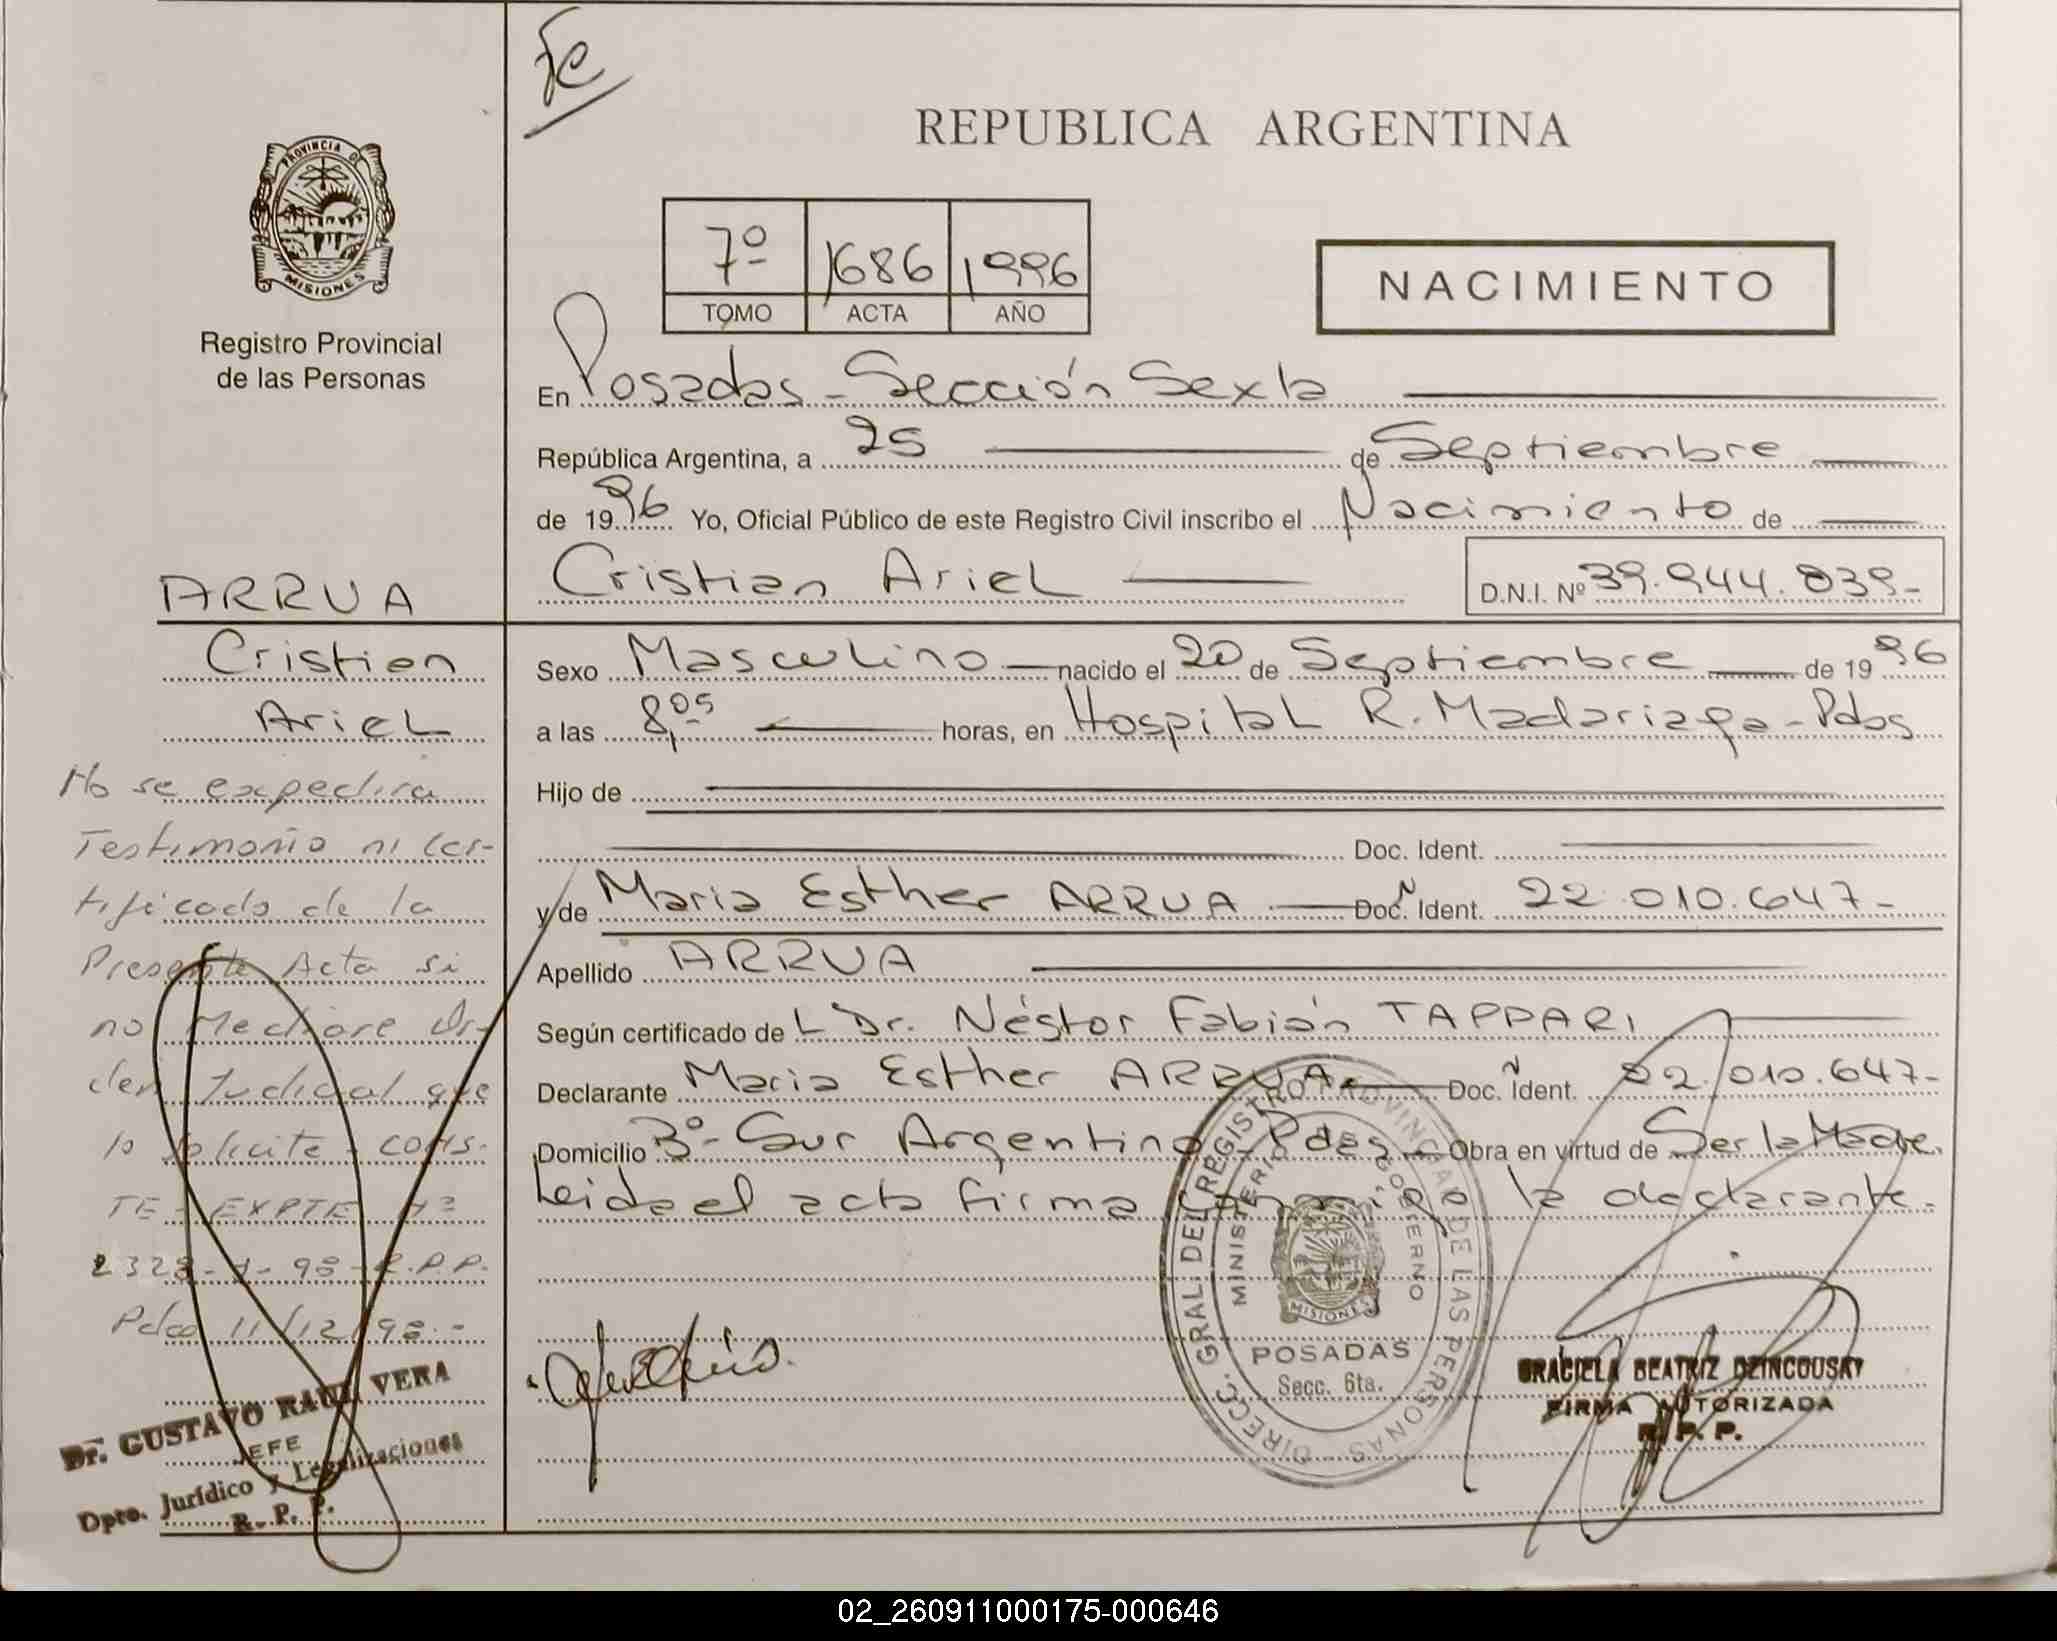 REPUBLICA ARGENTINA
PROVINCIA DE
MISIONES
Registro Provincial
de las Personas
7º 1686 1996
TOMO ACTA AÑO
NACIMIENTO
En Posadas - Sección Sexta
República Argentina, a 25 de Septiembre
de 1996 Yo, Oficial Público de este Registro Civil inscribo el Nacimiento de
Cristian Ariel D.N.I. Nº 39.944.039-
ARRUA
Cristian
Ariel
No se expedira
Testimonio ni Cer-
tificado de la
Presente Acta si
no Mediare Or-
den Judicial que
lo solicite - CONS-
TE - EXPTE Nº
2328-A-98-R.P.P.
Pdas 11/12/98.-
Dr. GUSTAVO RAUL VERA
JEFE
Dpto. Jurídico y Legalizaciones
R. P. P.
Sexo Masculino nacido el 20 de Septiembre de 1996
a las 8,05 horas, en Hospital R. Madariaga - Pdas
Hijo de
Doc. Ident.
y de Maria Esther ARRUA Doc. Ident. 22.010.647-
Apellido ARRUA
Según certificado de L Dr. Néstor Fabián TAPPARI
Declarante Maria Esther ARRUA- Doc. Ident. 22.010.647-
Domicilio Bº- Sur Argentino - Pdas - Obra en virtud de Ser la Madre.
Leida el acta firma conmigo la declarante.
DIRECC. GRAL. DEL REGISTRO PROVINCIAL DE LAS PERSONAS
MINISTERIO DE GOBIERNO
MISIONES
POSADAS
Secc. 6ta.
GRACIELA BEATRIZ DZINCOUSKY
FIRMA AUTORIZADA
R. P. P.
02_260911000175-000646